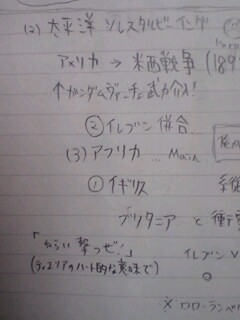 (2) 太平洋 ソレスタルビーイング
アメリカ → 米西戦争 (189
↑ガンダムヴァーチェ武力介入!
② イレブン併合…
(3) アフリカ … Main
① イギリス
ブリタニア と 種子
「ねらい撃つぜ!」
(ティエリアのハート的な意味で)
イレブン V
○
× ローラン